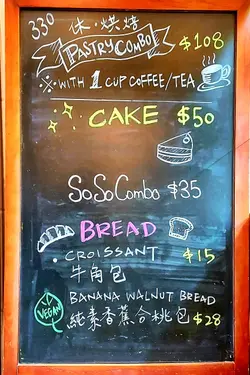 330 休·烘焙
PASTRY COMBO $108
※WITH 1 CUP COFFEE/TEA
CAKE $50
SoSoCombo $35
BREAD
• CROISSANT $15
牛角包
VEGAN BANANA WALNUT BREAD
純素香蕉合桃包 $28